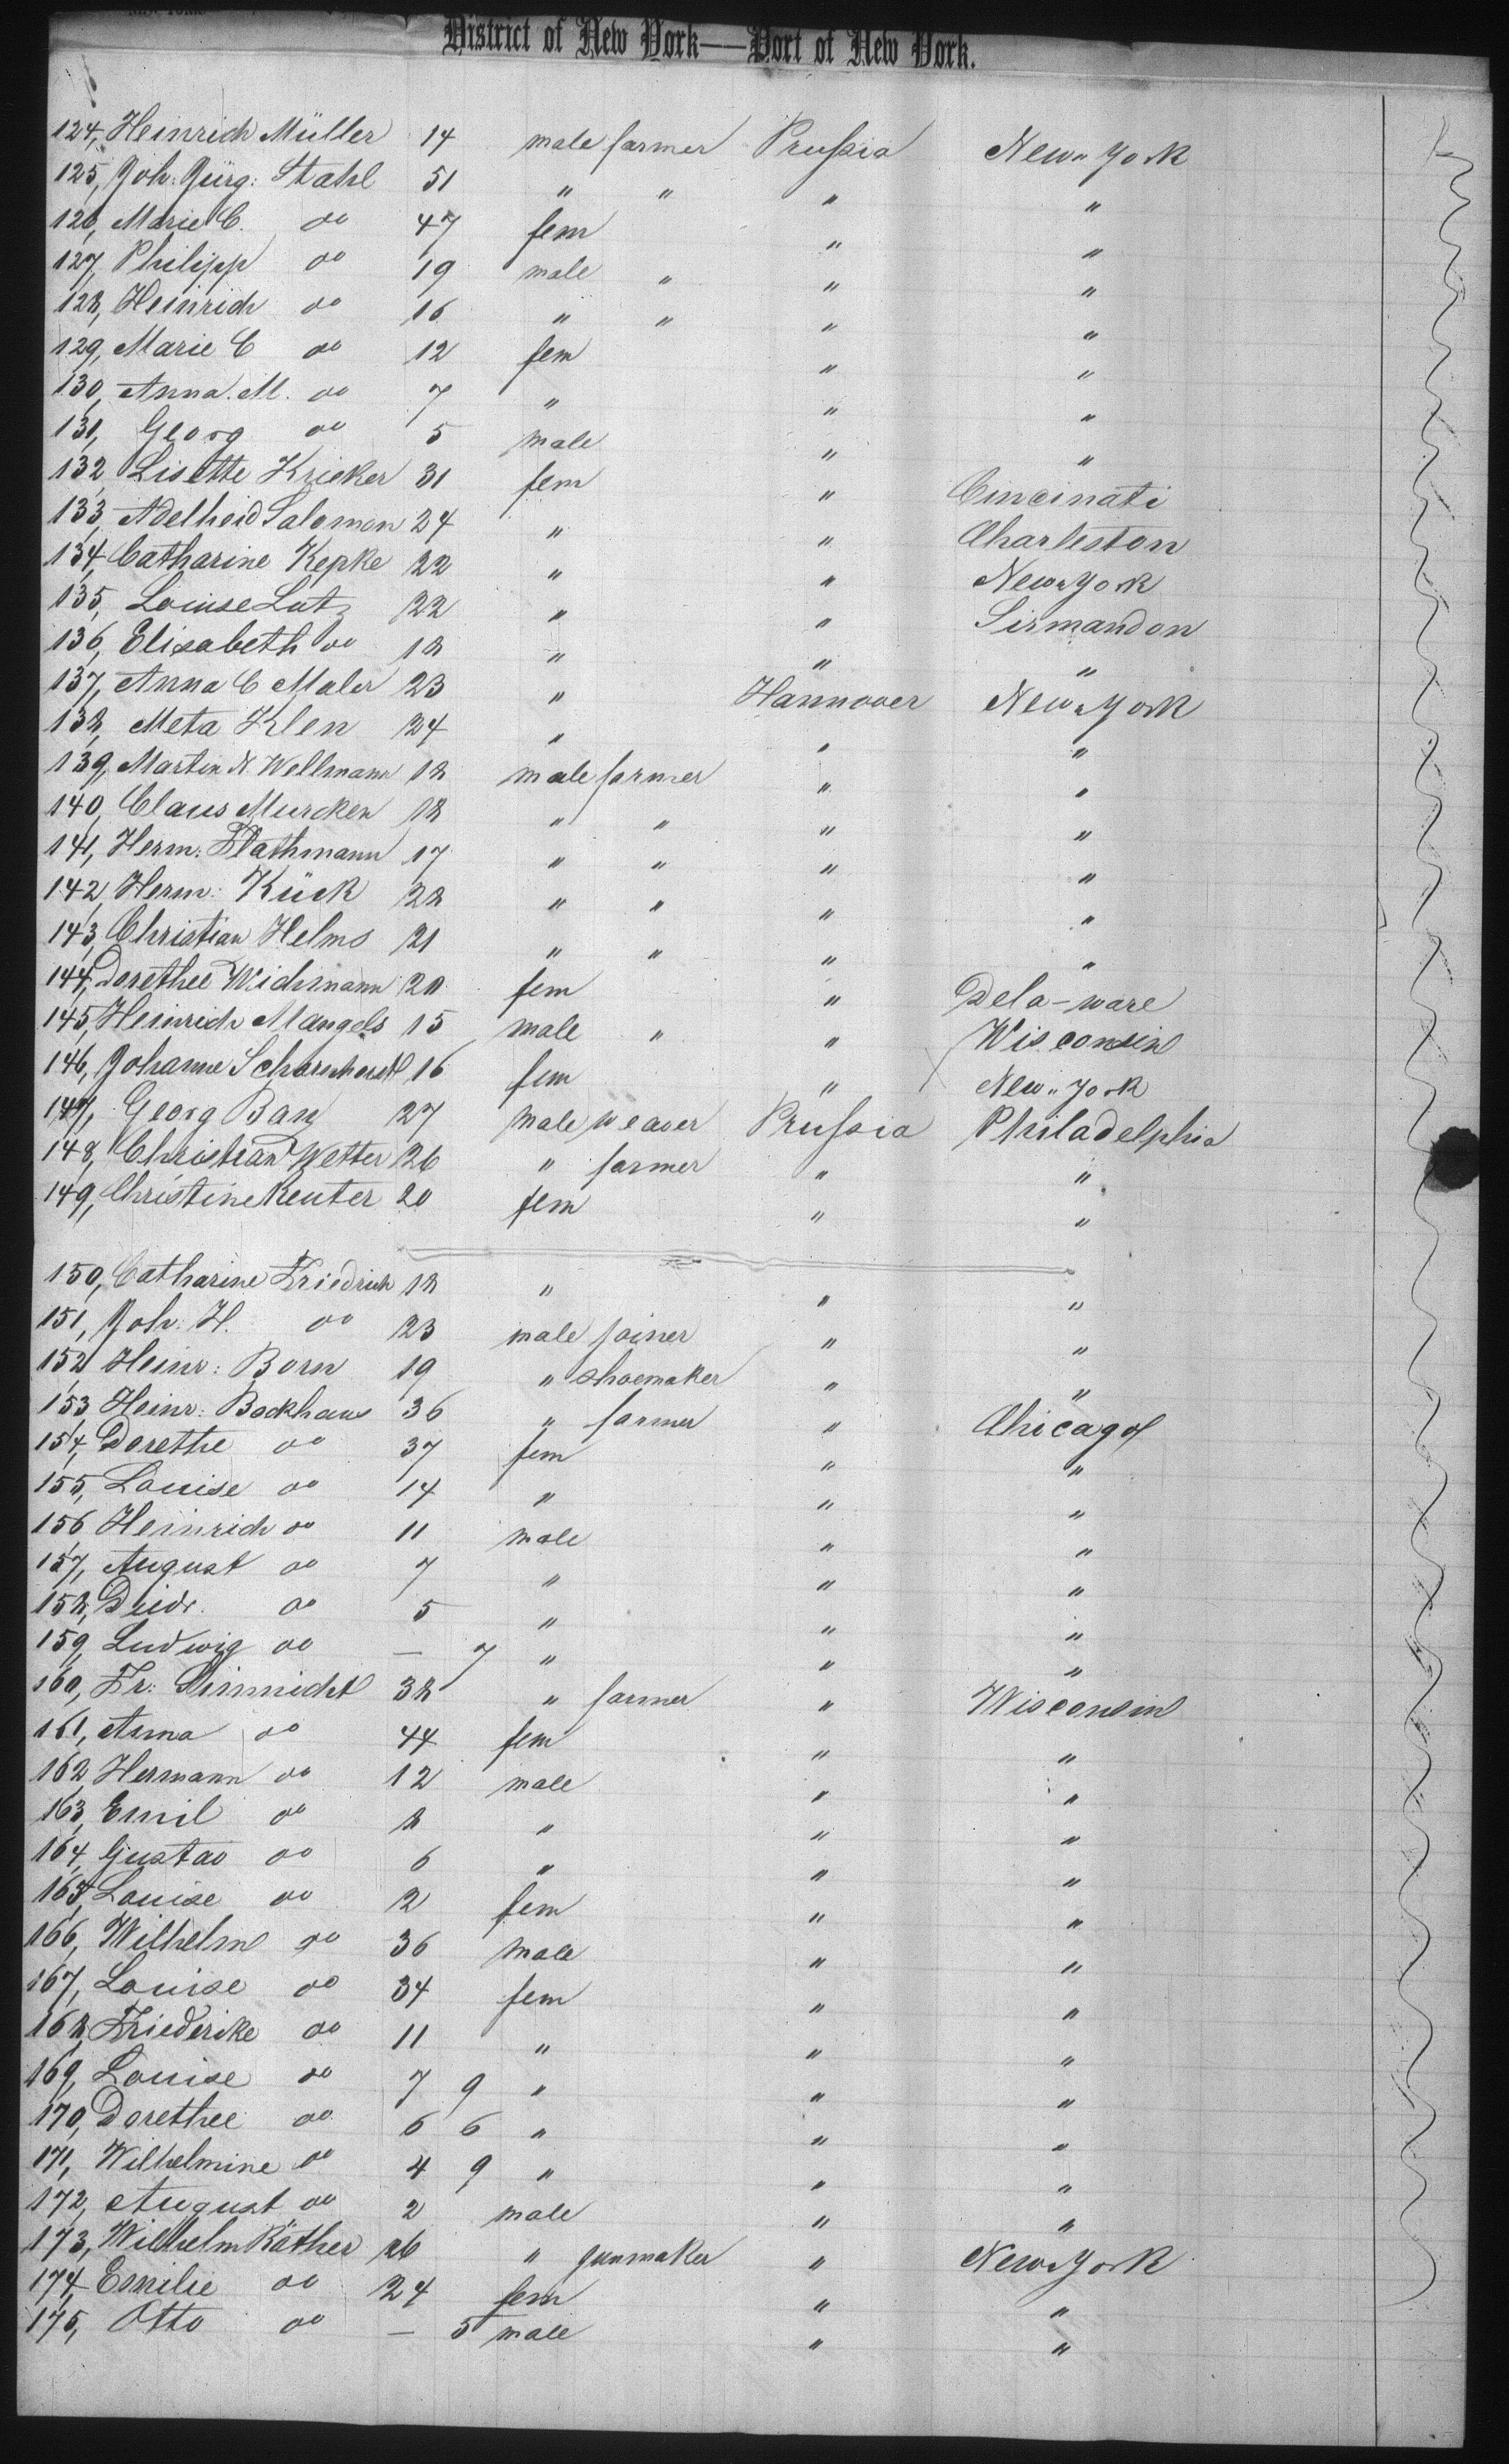 District of New York——Port of New York.
124, Heinrich Müller 14 male farmer Prussia New-York
125, Joh: Jürg: Stahl 51 " " " "
126, Marie C. do 47 fem " "
127, Philipp do 19 male " " "
128, Heinrich do 16 " " " "
129, Marie C do 12 fem " "
130, Anna. M. do 7 " " "
131, Georg do 5 male " "
132, Lisette Krieker 31 fem " Cincinati
133, Adelheid Salomon 24 " " Charleston
134, Catharine Kepke 22 " " New-York
135, Louise Lutz 22 " " Sirmandon
136, Elisabeth do 18 " " "
137, Anna C Maler 23 " Hannover New-York
138, Meta Klen 24 " " "
139, Martin N. Wellmann 18 male farmer " "
140, Claus Murcken 18 " " " "
141, Herm: Flathmann 17 " " " "
142, Herm: Kück 28 " " " "
143, Christian Helms 21 " " " "
144, Dorethee Wichmann 20 fem " Dela-ware
145, Heinrich Mangels 15 male " " Wisconsin
146, Johanne Scharnhorst 16 fem " New-York
147, Georg Ban 27 male weaver Prussia Philadelphia
148, Christian Wetter 26 " farmer " "
149, Christine Reuter 20 fem " "
150, Catharine Friedrich 18 " " "
151, Joh: H. do 23 male joiner " "
152, Heinr: Born 19 " shoemaker " "
153, Heinr: Backhaus 36 " farmer " Chicago
154, Dorethe do 37 fem " "
155, Louise do 14 " " "
156, Heinrich do 11 male " "
157, August do 7 " " "
158, Deidr. do 5 " " "
159, Ludwig do — 7 " " "
160, Fr: 38 " farmer " Wisconsin
161, Anna do 44 fem " "
162, Hermann do 12 male " "
163, Emil do 8 " " "
164, Gustav do 6 " " "
165, Louise do 2 fem " "
166, Wilhelm do 36 male " "
167, Louise do 34 fem " "
168, Friederike do 11 " " "
169, Louise do 7 9 " " "
170, Dorethee do 6 6 " " "
171, Wilhelmine do 4 9 " " "
172, August do 2 male " "
173, Wilhelm Käther 26 " gunmaker " New-York
174, Emilie do 24 fem " "
175, Otto do — 5 male " "